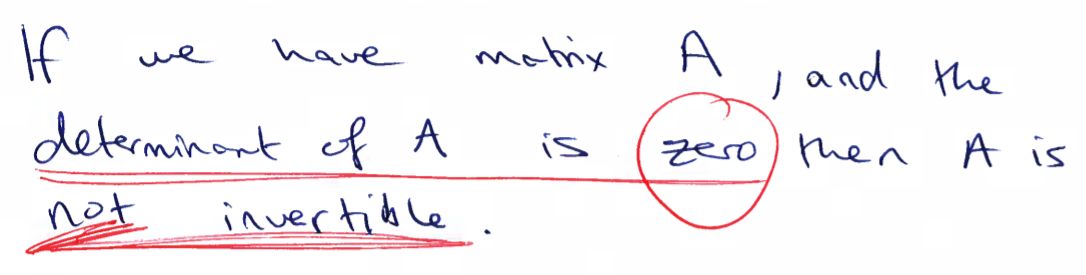 If we have matrix A, and the
determinant of A is zero then A is
not invertible.